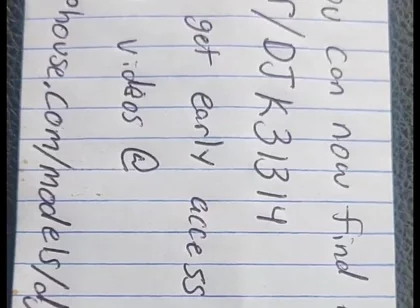 ou can now find
/DJK31314
get early access
videos @
ohouse.com/models/d